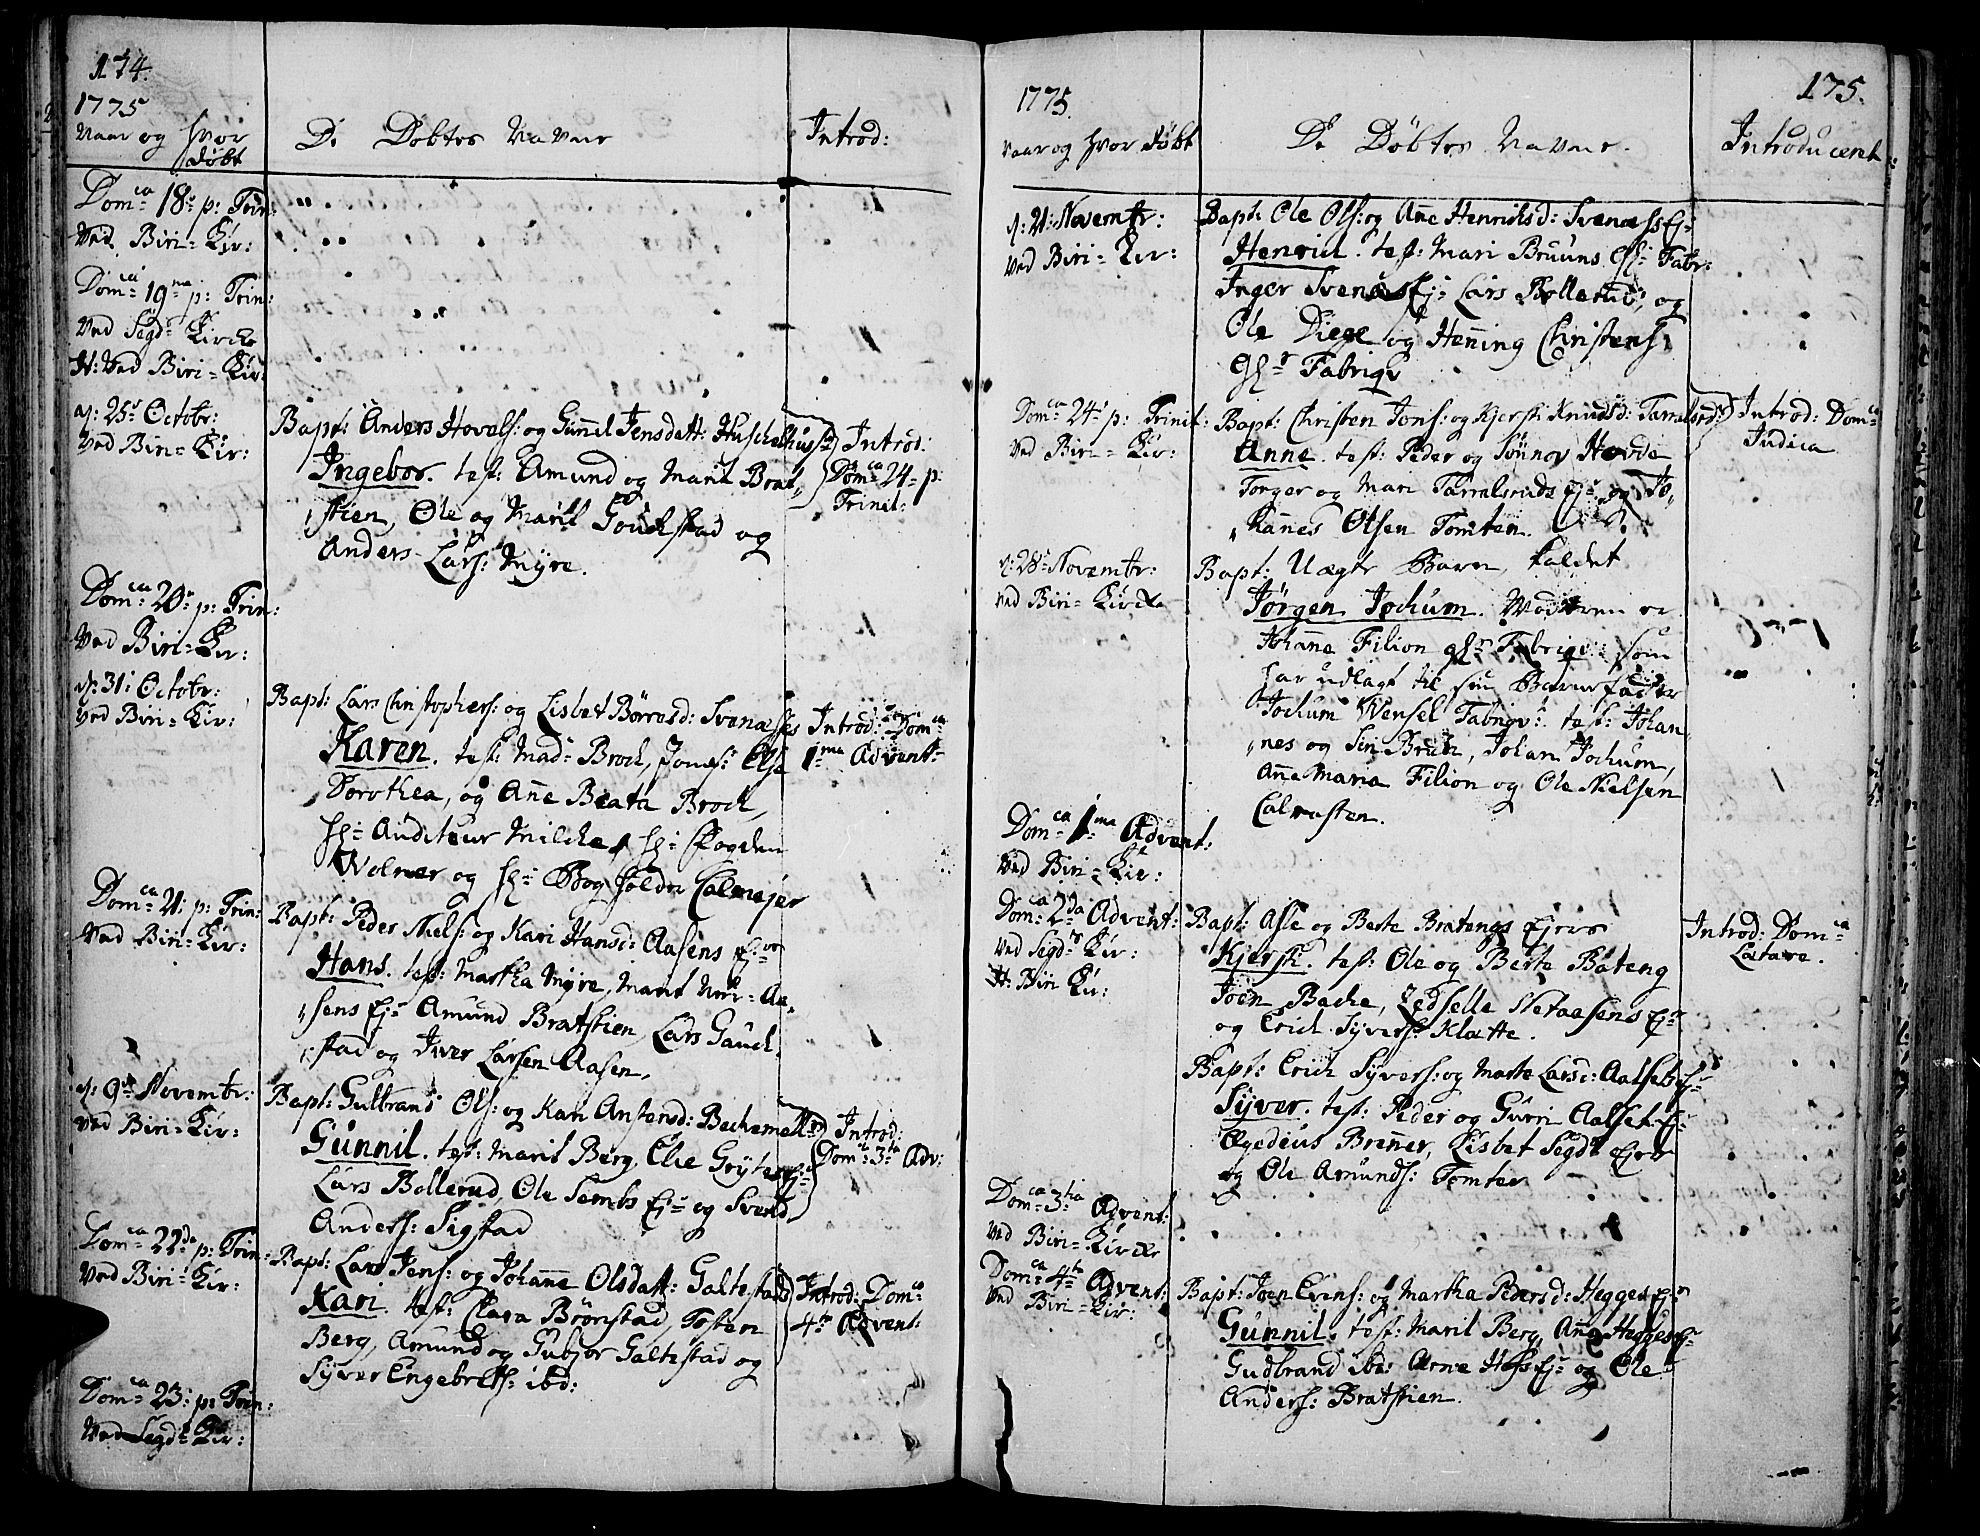 174.
1775
Naar og hvor Døbt
De Døbtes Navne
Introd:
Domca 18de p: Trin:
Ved Biri-Kir:
Domca 19ma p: Trin:
Ved Segd: Kirche
H: Ved Biri-Kir:
d: 25de Octobr:
Ved Biri-Kir:
Bapt: Anders Hovels: og Gunnil Jensdatt:
Ingebor. test: Amund og Marit Brat„
„stien, Ole og Marit Gouckstad og
Anders Lars: Myre.
Introd:
Domca 24 p:
Trinit:
Domca 20de p: Trin:
Ved Biri-Kir:
d: 31: Octobr:
Ved Biri-Kir:
Bapt: Lars Christophers: og Lisbet Børresd: Svenæsses
Karen. test: Mad: Brock, Jomf: Else
Dorothea, og Anne Beata Brock,
Hr: Auditeur Milche, Hr: Fogden
Wolmer og Hr: Bogholder Calmejer
Introd: Domca
1ma Advent:
Domca 21: p: Trin:
Ved Biri-Kir:
Bapt: Peder Niels: og Kari Hansd: Aasens Ejer
Hans. test: Martha Myre, Marit Aa„
„sens Ej: Amund Bratstien, Lars Gauck„
„stad og Iver Larsen Aasen,
d: 9de Novembr:
Ved Biri-Kir:
Bapt: Gulbrand Ols: og Kari Anstensd:
Gunnil. test: Marit Berg, Elie Grytens Ej:
Lars Bollerud, Ole Sembs Ej: og Svend
Anders: Sigstad
Introd:
Domca 3tia Adv:
Domca 22da p: Trin:
Ved Biri-Kir:
Bapt: Lars Jens: og Johanne Olsdatt: Galtestad
Kari. test: Clara Børnstad, Tosten
Berg, Amund og Gubjør Galtestad og
Syver Engebrets: ibd:
Introd: Domca
4ta Advent:
Domca 23: p: Trin:
Ved Segd: Kir:
1775.
175.
Naar og hvor Døbt
De Døbtes Navne.
Introducent:
d: 21: Novembr:
Ved Biri-Kir:
Bapt: Ole Ols: og Anne Henrichsd: Svenæss Ej:
Henrich. test: Mari Bruuns Gl: Fabr:
Inger Svenæs Ej: Lars Bollerud, og
Ole Diege og Henning Christens:
Gl: Fabriqv
Domca 24de p: Trinit:
Ved Biri-Kir:
Bapt: Christen Jons: og Kjersti Knudsd: Tarralsrud
Anne. test: Peder og Sønnov Hovde
Torger og Mari Tarralsruds Ej: og Jo„
„hannes Olsen Tomten.
Introd: Domca
Judica
d: 28de Novembr:
Ved Biri-Kirche
Bapt: Uægte Barn, kaldet
Jørgen Jochum. Moderen er
Johanne Filion Gl: Fabriqv: som
har udlagt til sin Barnefader
Jochum Wensel Fabriqv: test: Johan„
„nes og Siri Brun, Johan Jochum,
Anne Maria Filion og Ole Nielsen
Calvasten.
Domca 1ma Advent:
Ved Biri-Kir:
Domca 2da Advent:
Ved Segd: Kir:
H: Biri Kir:
Bapt: Asle og Berte Bratengs Ejere
Kjersti. test: Ole og Berte Bateng
Joen Bache, Zedselle Ej:
og Erich Syvers: Klatte.
Introd: Domca
Lætare.
Bapt: Erich Syvers: og Marte Larsd:
Syver. test: Peder og Gurri Aalset Ej:
Egedius Brenner, Lisbet Segd: Ejere
og Ole Amunds: Tomten
Domca 3tia Advent:
Ved Biri-Kirche
Domca 4ta Advent:
Ved Biri-Kir:
Bapt: Joen Evens: og Martha Pedersd: Hegges Ej:
Gunnil. test: Marit Berg, Anne Hegges Ej:
Gudbrand ibd: Arne Ej: og Ole
Anders: Bratstien.